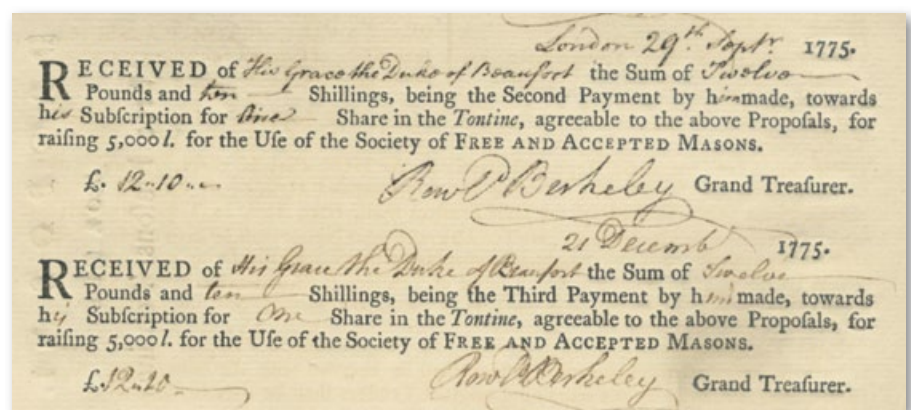 London 29th Septr. 1775.
RECEIVED of His Grace the Duke of Beaufort the Sum of Twelve
Pounds and ten Shillings, being the Second Payment by him made, towards
his Subſcription for One Share in the Tontine, agreeable to the above Propoſals, for
raiſing 5,000 l. for the Uſe of the Society of FREE AND ACCEPTED MASONS.
£. 12..10..
Rowd Berkeley Grand Treaſurer.
21 Decemb 1775.
RECEIVED of His Grace the Duke of Beaufort the Sum of Twelve
Pounds and ten Shillings, being the Third Payment by him made, towards
his Subſcription for One Share in the Tontine, agreeable to the above Propoſals, for
raiſing 5,000 l. for the Uſe of the Society of FREE AND ACCEPTED MASONS.
£. 12..10
Rowd Berkeley Grand Treaſurer.